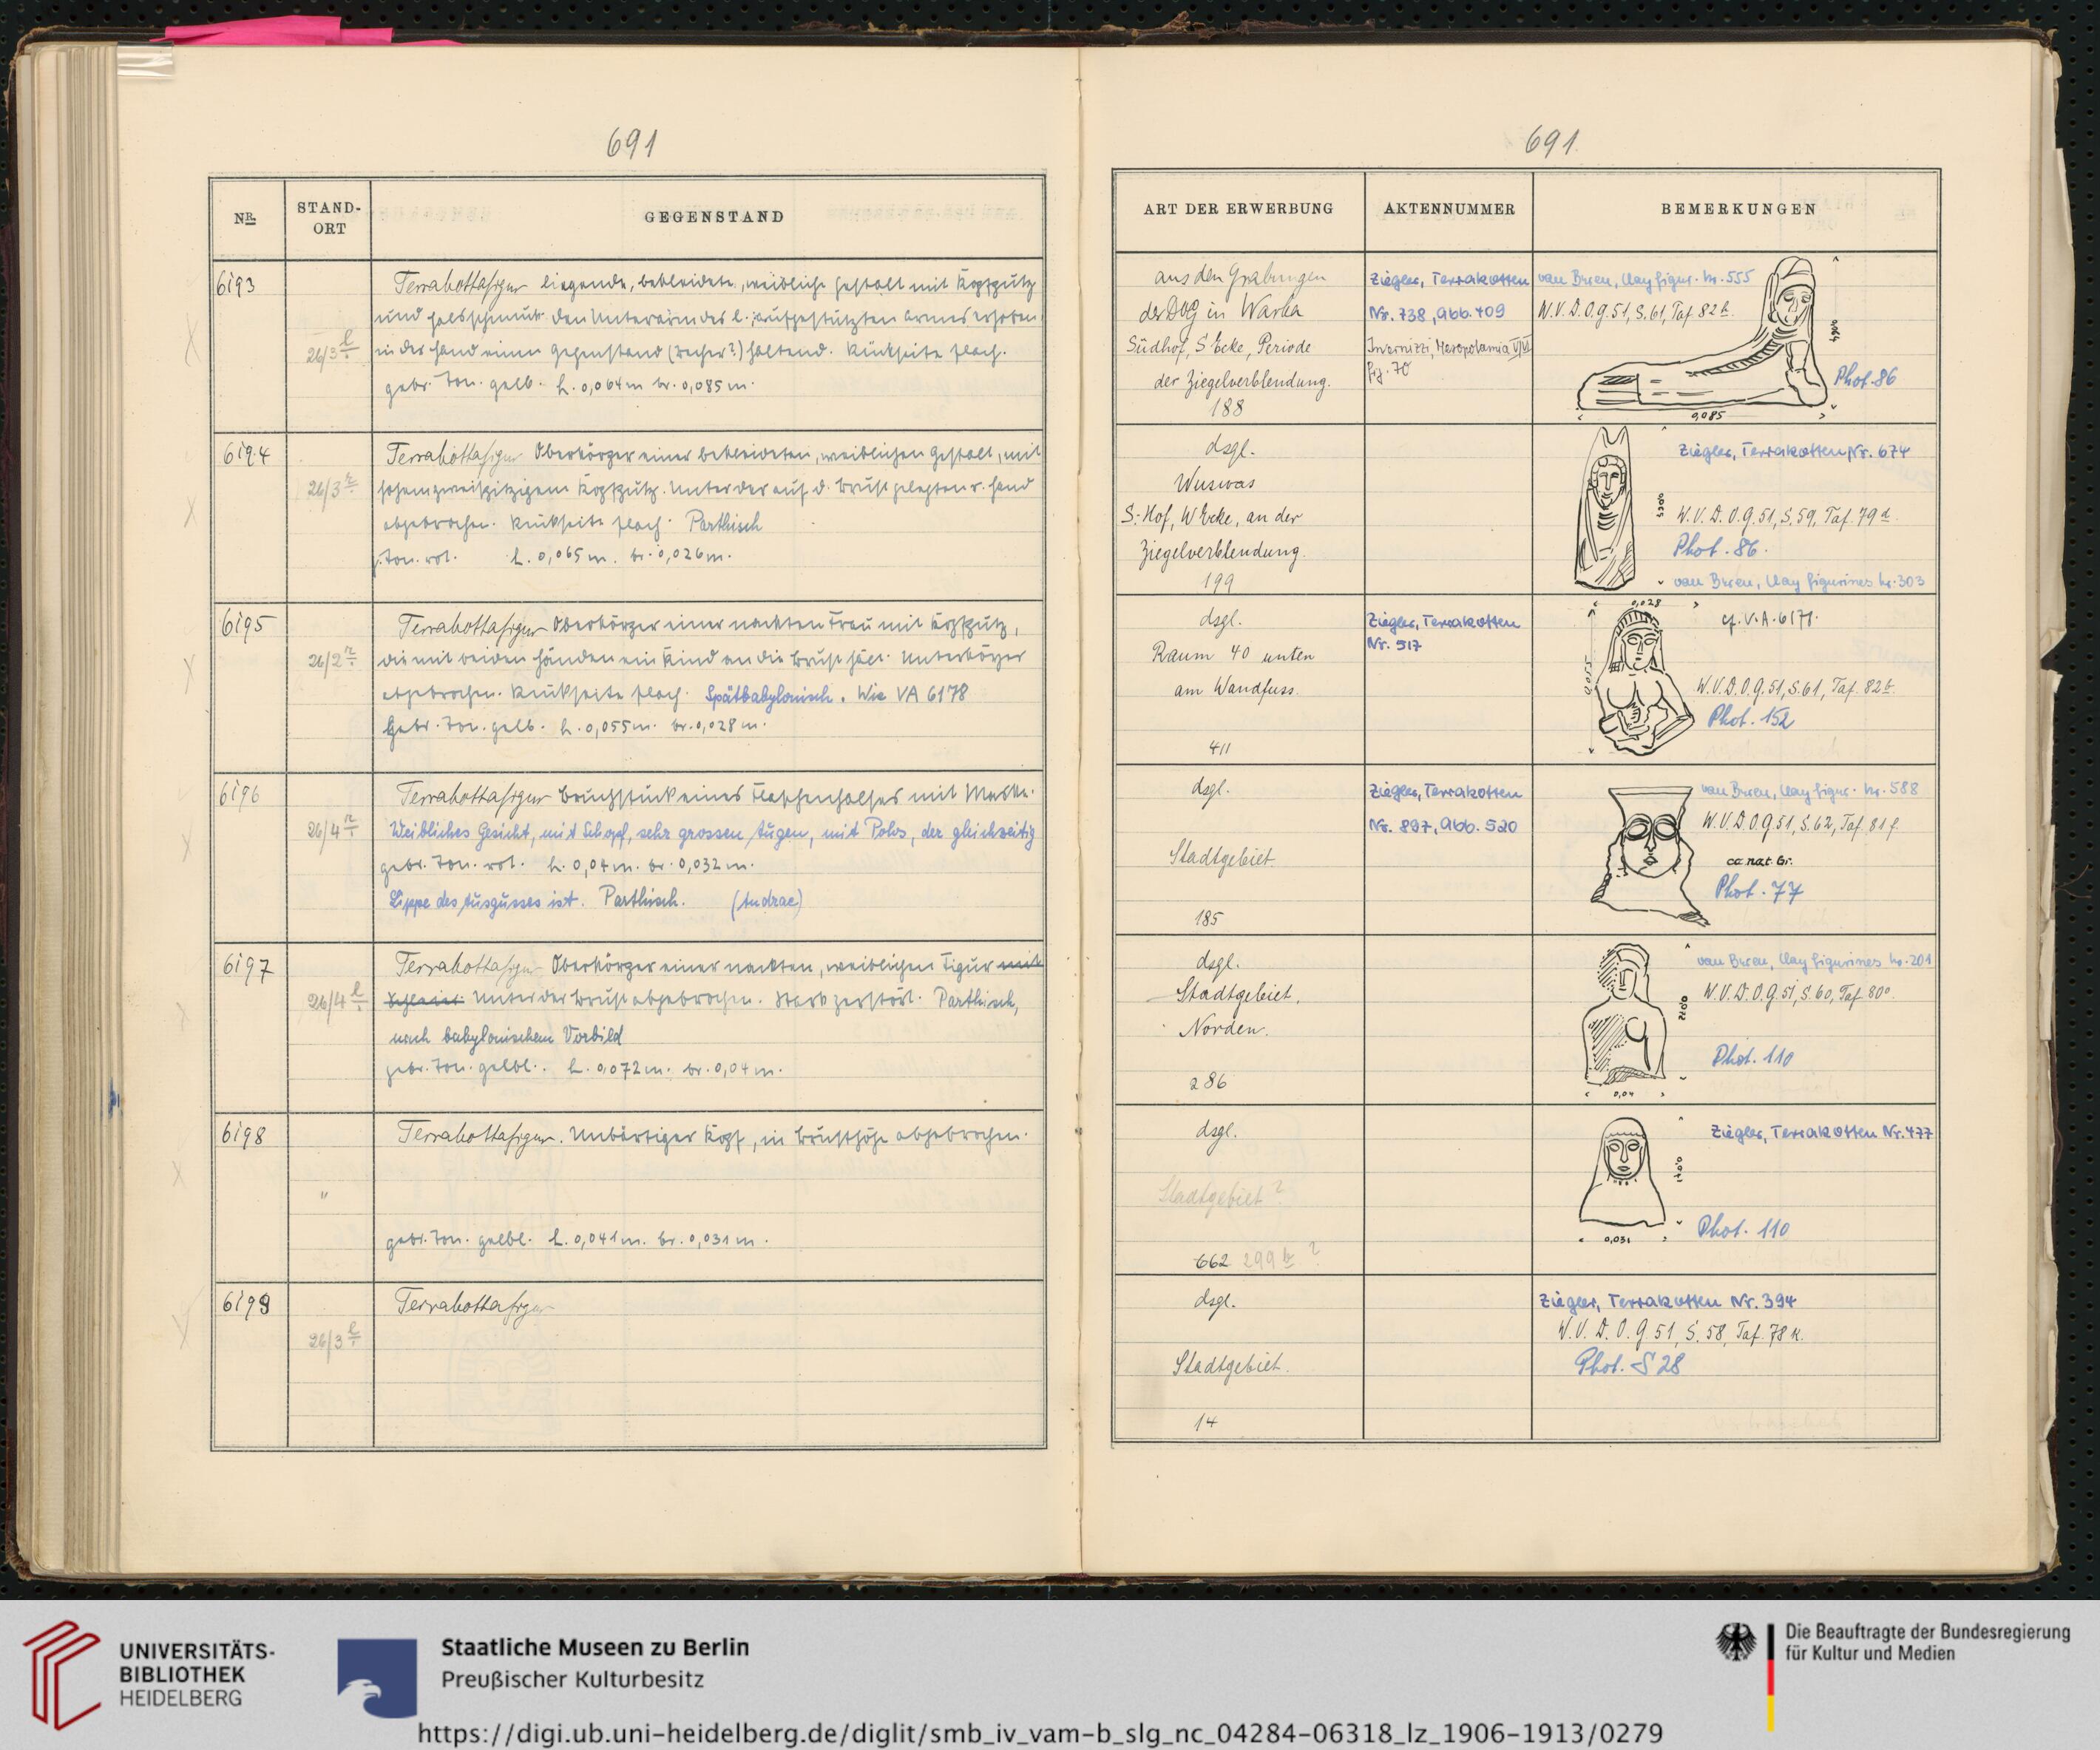 691
NR.
STAND-
ORT
GEGENSTAND
6193
26/3 l.
Terrakottafigur liegende, bekleidete, weibliche Gestalt mit Kopfputz
und Halsschmuck den Unterarm des l. aufgestützten Armes erhoben
in der Hand einen Gegenstand (Becher?) haltend. Rückseite flach.
gebr. Ton. gelb. h. 0,064m br. 0,085m.
6194
26/3 r.
Terrakottafigur Oberkörper einer bekleideten, weiblichen Gestalt, mit
hohem zweispitzigem Kopfputz. Unter der auf d. Brust gelegten r. Hand
abgebrochen. Rückseite flach. Parthisch
g. Ton. rot. h. 0,065m. br. 0,026m.
6195
26/2 r.
Terrakottafigur Oberkörper einer nackten Frau mit Kopfputz,
die mit beiden Händen ein Kind an die Brust hält. Unterkörper
abgebrochen. Rückseite flach. Spätbabylonisch. Wie VA 6178
Gebr. Ton. gelb. h. 0,055m. br. 0,028m.
6196
26/4 r.
Terrakottafigur Bruchstück eines Flaschenhalses mit Maske.
Weibliches Gesicht, mit Schopf, sehr grossen Augen, mit Polos, der gleichzeitig
gebr. Ton. rot. h. 0,04m. br. 0,032m.
Lippe des Ausgusses ist. Parthisch. (Andrae)
6197
26/4 l.
Terrakottafigur Oberkörper einer nackten, weiblichen Figur mit
Unter der Brust abgebrochen. Stark zerstört. Parthisch,
nach babylonischem Vorbild
gebr. Ton. gelbl. h. 0,072m. br. 0,04m.
6198
"
Terrakottafigur. Unbärtiger Kopf, in Brusthöhe abgebrochen.
gebr. Ton. gelbl. h. 0,041m. br. 0,031m.
6199
26/3 l.
Terrakottafigur
691
ART DER ERWERBUNG
AKTENNUMMER
BEMERKUNGEN
aus den Grabungen
der DOG in Warka
Südhof, S Ecke, Periode
der Ziegelverblendung.
188
Ziegler, Terrakotten
Nr. 738, Abb. 409
Invernizzi, Mesopotamia V/VI
fig. 70
van Buren, Clay figur. Nr. 555
W.V.D.O.G. 51, S. 61, Taf. 82 h.
0,064
Phot. 86
0,085
dsgl.
Wuswas
S. Hof, W Ecke, an der
Ziegelverblendung.
199
Ziegler, Terrakotten Nr. 674
0,065
W.V.D.O.G. 51, S. 59, Taf. 79 d.
Phot. 86.
van Buren, Clay figurines Nr. 303
dsgl.
Raum 40 unten
am Wandfuss.
411
Ziegler, Terrakotten
Nr. 517
0,028
0,055
cf. V.A. 6178.
W.V.D.O.G. 51, S. 61, Taf. 82 b.
Phot. 152
dsgl.
Stadtgebiet
185
Ziegler, Terrakotten
Nr. 897, Abb. 520
van Buren, Clay figur. Nr. 588
W.V.D.O.G. 51, S. 62, Taf. 81 f.
ca. nat. Gr.
Phot. 77
dsgl.
Stadtgebiet,
Norden.
286
van Buren, Clay figurines Nr. 201
W.V.D.O.G. 51, S. 60, Taf. 80 o.
0,072
Phot. 110
0,04
dsgl.
Stadtgebiet?
662 299 b ?
Ziegler, Terrakotten Nr. 477
0,041
Phot. 110
0,031
dsgl.
Stadtgebiet.
14
Ziegler, Terrakotten Nr. 394
W.V.D.O.G. 51, S. 58, Taf. 78 k.
Phot. S 28
UNIVERSITÄTS-
BIBLIOTHEK
HEIDELBERG
Staatliche Museen zu Berlin
Preußischer Kulturbesitz
Die Beauftragte der Bundesregierung
für Kultur und Medien
https://digi.ub.uni-heidelberg.de/diglit/smb_iv_vam-b_slg_nc_04284-06318_lz_1906-1913/0279